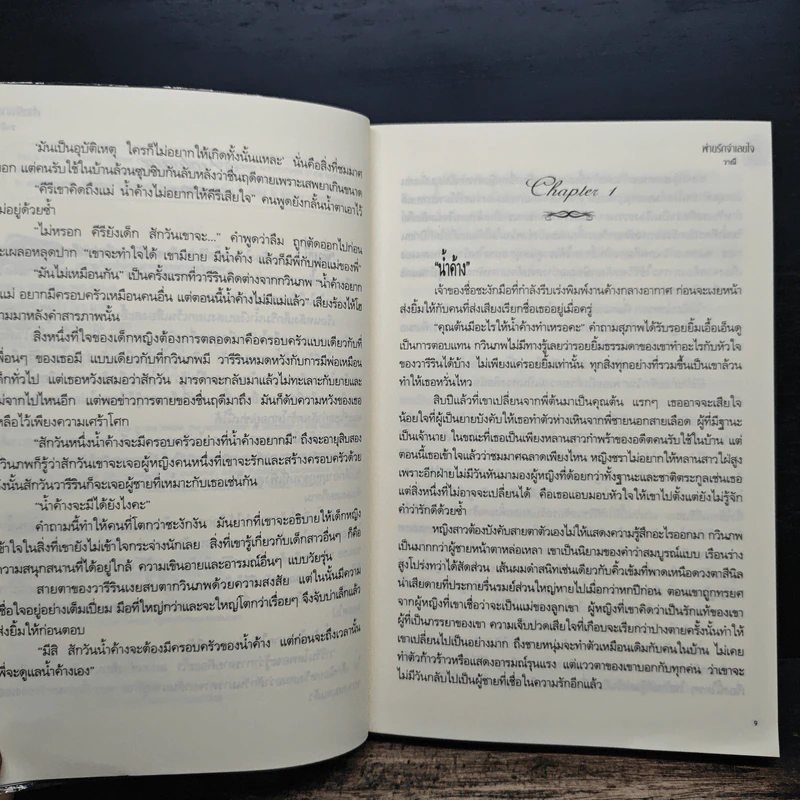 "มันเป็นอุบัติเหตุ ใครก็ไม่อยากให้เกิดทั้งนั้นแหละ" นั่นคือสิ่งที่ชมมาด
บอก แต่คนรับใช้ในบ้านล้วนซุบซิบกันลับหลังว่าชื่นฤดีตายเพราะเสพยาเกินขนาด
"คีรีเขาคิดถึงแม่ น้ำค้างไม่อยากให้คีรีเสียใจ" คนพูดยังกลั้นน้ำตาเอาไว้
ไม่อยู่ด้วยซ้ำ
"ไม่หรอก คีรียังเด็ก สักวันเขาจะ..." คำพูดว่าลืม ถูกตัดออกไปก่อน
จะเผลอหลุดปาก "เขาจะทำใจได้ เขามียาย มีน้ำค้าง แล้วก็มีพี่กับพ่อแม่ของพี่"
"มันไม่เหมือนกัน" เป็นครั้งแรกที่วารีรินคิดต่างจากกวินภพ "น้ำค้างอยาก
มีแม่ อยากมีครอบครัวเหมือนคนอื่น แต่ตอนนี้น้ำค้างไม่มีแม่แล้ว" เสียงร้องไห้โฮ
ตามมาหลังคำสารภาพนั้น
สิ่งหนึ่งที่ใจของเด็กหญิงต้องการตลอดมาคือครอบครัวแบบเดียวกับที่
เพื่อนๆ ของเธอมี แบบเดียวกับที่กวินภพมี วารีรินหมดหวังกับการมีพ่อเหมือน
เด็กทั่วไป แต่เธอหวังเสมอว่าสักวัน มารดาจะกลับมาแล้วไม่ทะเลาะกับยายและ
ไม่จากไปไหนอีก แต่พอข่าวการตายของชื่นฤดีมาถึง มันก็ดับความหวังของเธอ
เหลือไว้เพียงความเศร้าโศก
"สักวันหนึ่งน้ำค้างจะมีครอบครัวอย่างที่น้ำค้างอยากมี" ถึงจะอายุสิบสอง
กวินภพก็รู้ว่าสักวันเขาจะเจอผู้หญิงคนหนึ่งที่เขาจะรักและสร้างครอบครัวด้วย
ดังนั้นสักวันวารีรินก็จะเจอผู้ชายที่เหมาะกับเธอเช่นกัน
"น้ำค้างจะมีได้ยังไงคะ"
คำถามนี้ทำให้คนที่โตกว่าชะงักงัน มันยากที่เขาจะอธิบายให้เด็กหญิง
เข้าใจในสิ่งที่เขายังไม่เข้าใจกระจ่างนักเลย สิ่งที่เขารู้เกี่ยวกับเด็กสาวอื่นๆ ก็คือ
ความสนุกสนานที่ได้อยู่ใกล้ ความเขินอายและอารมณ์อื่นๆ แบบวัยรุ่น
สายตาของวารีรินเงยสบตากวินภพด้วยความสงสัย แต่ในนั้นมีความ
เชื่อใจอยู่อย่างเต็มเปี่ยม มือที่ใหญ่กว่าและจะใหญ่โตกว่าเรื่อยๆ จึงจับบ่าเล็กแล้ว
ส่งยิ้มให้ก่อนตอบ
"มีสิ สักวันน้ำค้างจะต้องมีครอบครัวของน้ำค้าง แต่ก่อนจะถึงเวลานั้น
พี่จะดูแลน้ำค้างเอง"
พ่ายรักจำเลยใจ
วาณี
Chapter 1
"น้ำค้าง"
เจ้าของชื่อชะงักมือที่กำลังรีบเร่งพิมพ์งานค้างกลางอากาศ ก่อนจะเงยหน้า
ส่งยิ้มให้กับคนที่ส่งเสียงเรียกชื่อเธออยู่เมื่อครู่
"คุณต้นมีอะไรให้น้ำค้างทำเหรอคะ" คำถามสุภาพได้รับรอยยิ้มเอื้อเอ็นดู
เป็นการตอบแทน กวินภพไม่มีทางรู้เลยว่ารอยยิ้มธรรมดาของเขาทำอะไรกับหัวใจ
ของวารีรินได้บ้าง ไม่เพียงแค่รอยยิ้มเท่านั้น ทุกสิ่งทุกอย่างที่รวมขึ้นเป็นเขาล้วน
ทำให้เธอหวั่นไหว
สิบปีแล้วที่เขาเปลี่ยนจากพี่ต้นมาเป็นคุณต้น แรกๆ เธออาจจะเสียใจ
น้อยใจที่ผู้เป็นยายบังคับให้เธอทำตัวห่างเหินจากพี่ชายนอกสายเลือด ผู้ที่มีฐานะ
เป็นเจ้านาย ในขณะที่เธอเป็นเพียงหลานสาวกำพร้าของอดีตคนรับใช้ในบ้าน แต่
ตอนนี้เธอเข้าใจแล้วว่าชมมาดฉลาดเพียงไหน หญิงชราไม่อยากให้หลานสาวใฝ่สูง
เพราะอีกฝ่ายไม่มีวันหันมามองผู้หญิงที่ด้อยกว่าทั้งฐานะและชาติตระกูลเช่นเธอ
แต่สิ่งหนึ่งที่ไม่อาจจะเปลี่ยนได้ คือเธอแอบมอบหัวใจให้เขาไปตั้งแต่ยังไม่รู้จัก
คำว่ารักดีด้วยซ้ำ
หญิงสาวต้องบังคับสายตาตัวเองไม่ให้แสดงความรู้สึกอะไรออกมา กวินภพ
เป็นมากกว่าผู้ชายหน้าตาหล่อเหลา เขาเป็นนิยามของคำว่าสมบูรณ์แบบ เรือนร่าง
สูงโปร่งกว่าได้สัดส่วน เส้นผมดำสนิทเช่นเดียวกับคิ้วเข้มที่พาดเหนือดวงตาสีนิล
น่าเสียดายที่ประกายรื่นรมย์ส่วนใหญ่หายไปเมื่อกว่าหกปีก่อน ตอนเขาถูกทรยศ
จากผู้หญิงที่เขาเชื่อว่าจะเป็นแม่ของลูกเขา ผู้หญิงที่เขาคิดว่าเป็นรักแท้ของเขา
ผู้ที่เป็นภรรยาของเขา ความเจ็บปวดเสียใจที่เกือบจะเรียกว่าปางตายครั้งนั้นทำให้
เขาเปลี่ยนไปเป็นอย่างมาก ถึงชายหนุ่มจะทำตัวเหมือนเดิมกับคนในบ้าน ไม่เคย
ทำตัวก้าวร้าวหรือแสดงอารมณ์รุนแรง แต่แววตาของเขาบอกกับทุกคน ว่าเขาจะ
ไม่มีวันกลับไปเป็นผู้ชายที่เชื่อในความรักอีกแล้ว
9